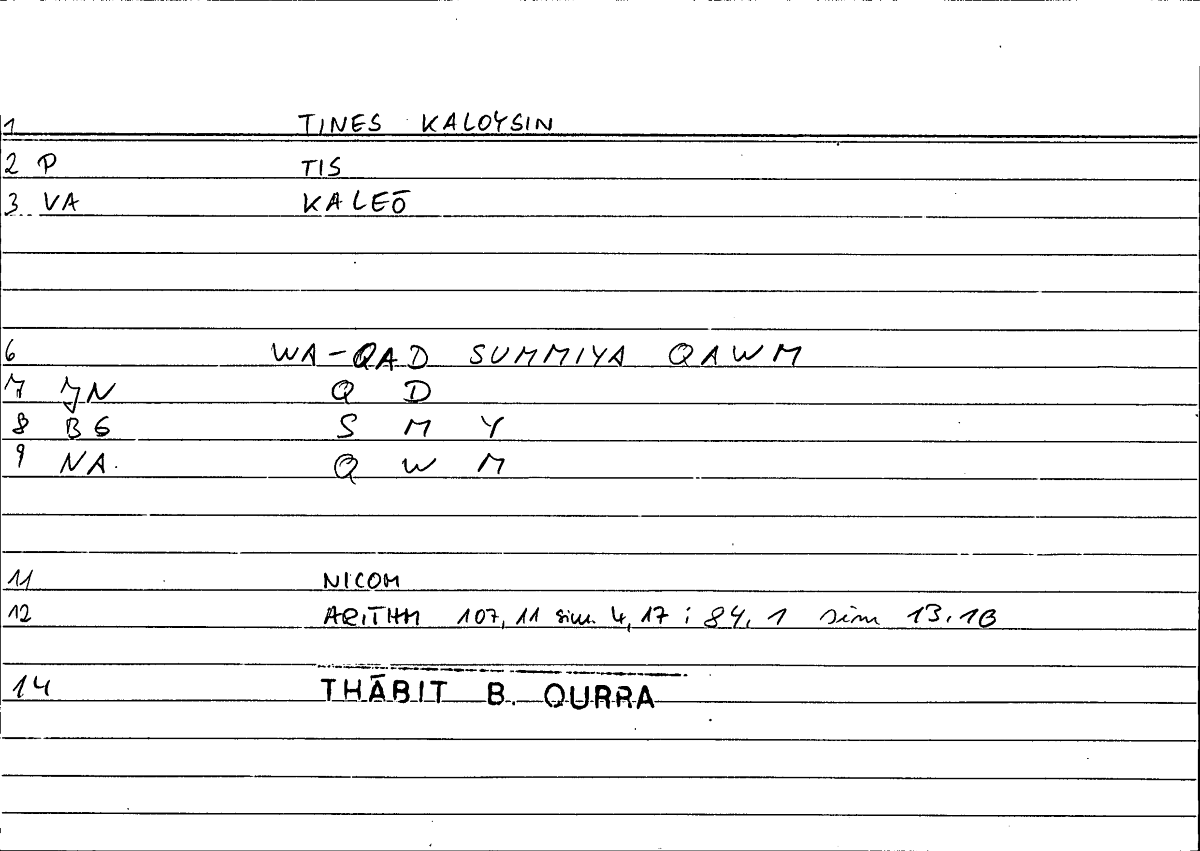 1 TINES KALOYSIN
2 P TIS
3 VA KALEŌ
6 WA-QAD SUMMIYA QAWM
7 JN Q D
8 BG S M Y
9 NA. Q W M
11 NICOM
12 ARITHM 107, 11 sim. 4, 17 ; 84, 1 sim 13.18
14 THĀBIT B. QURRA